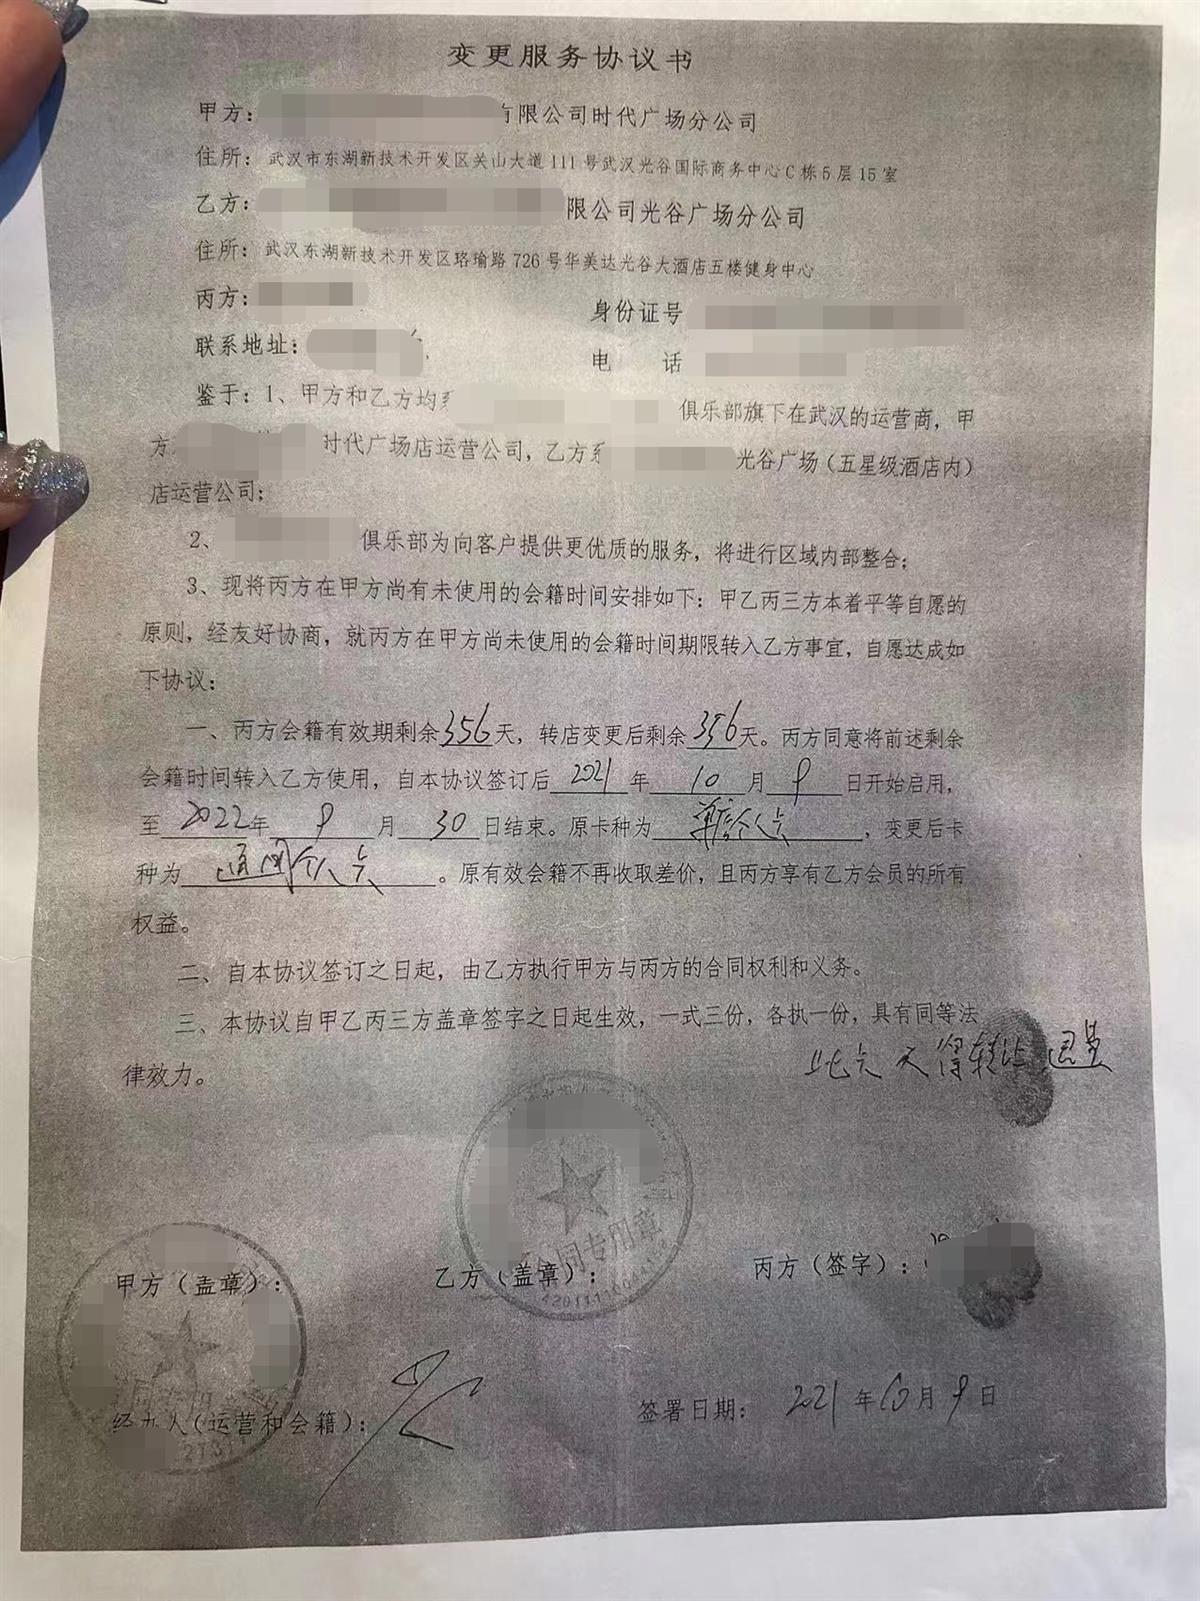 变更服务协议书
甲方：有限公司时代广场分公司
住所：武汉市东湖新技术开发区关山大道111号武汉光谷国际商务中心C栋5层15室
乙方：限公司光谷广场分公司
住所：武汉东湖新技术开发区珞瑜路726号华美达光谷大酒店五楼健身中心
丙方： 身份证号
联系地址： 电 话
鉴于：1、甲方和乙方均系 俱乐部旗下在武汉的运营商，甲
方 时代广场店运营公司，乙方系 光谷广场（五星级酒店内）
店运营公司；
2、 俱乐部为向客户提供更优质的服务，将进行区域内部整合；
3、现将丙方在甲方尚有未使用的会籍时间安排如下：甲乙丙三方本着平等自愿的
原则，经友好协商，就丙方在甲方尚未使用的会籍时间期限转入乙方事宜，自愿达成如
下协议：
一、丙方会籍有效期剩余356天，转店变更后剩余356天。丙方同意将前述剩余
会籍时间转入乙方使用，自本协议签订后2021年10月9日开始启用，
至2022年9月30日结束。原卡种为单店个人卡，变更后卡
种为通用个人卡。原有效会籍不再收取差价，且丙方享有乙方会员的所有
权益。
二、自本协议签订之日起，由乙方执行甲方与丙方的合同权利和义务。
三、本协议自甲乙丙三方盖章签字之日起生效，一式三份，各执一份，具有同等法
律效力。
此卡不得转让
合同专用章
甲方（盖章）： 乙方（盖章）： 丙方（签字）：
经办人（运营和会籍）： 签署日期： 2021年10月9日